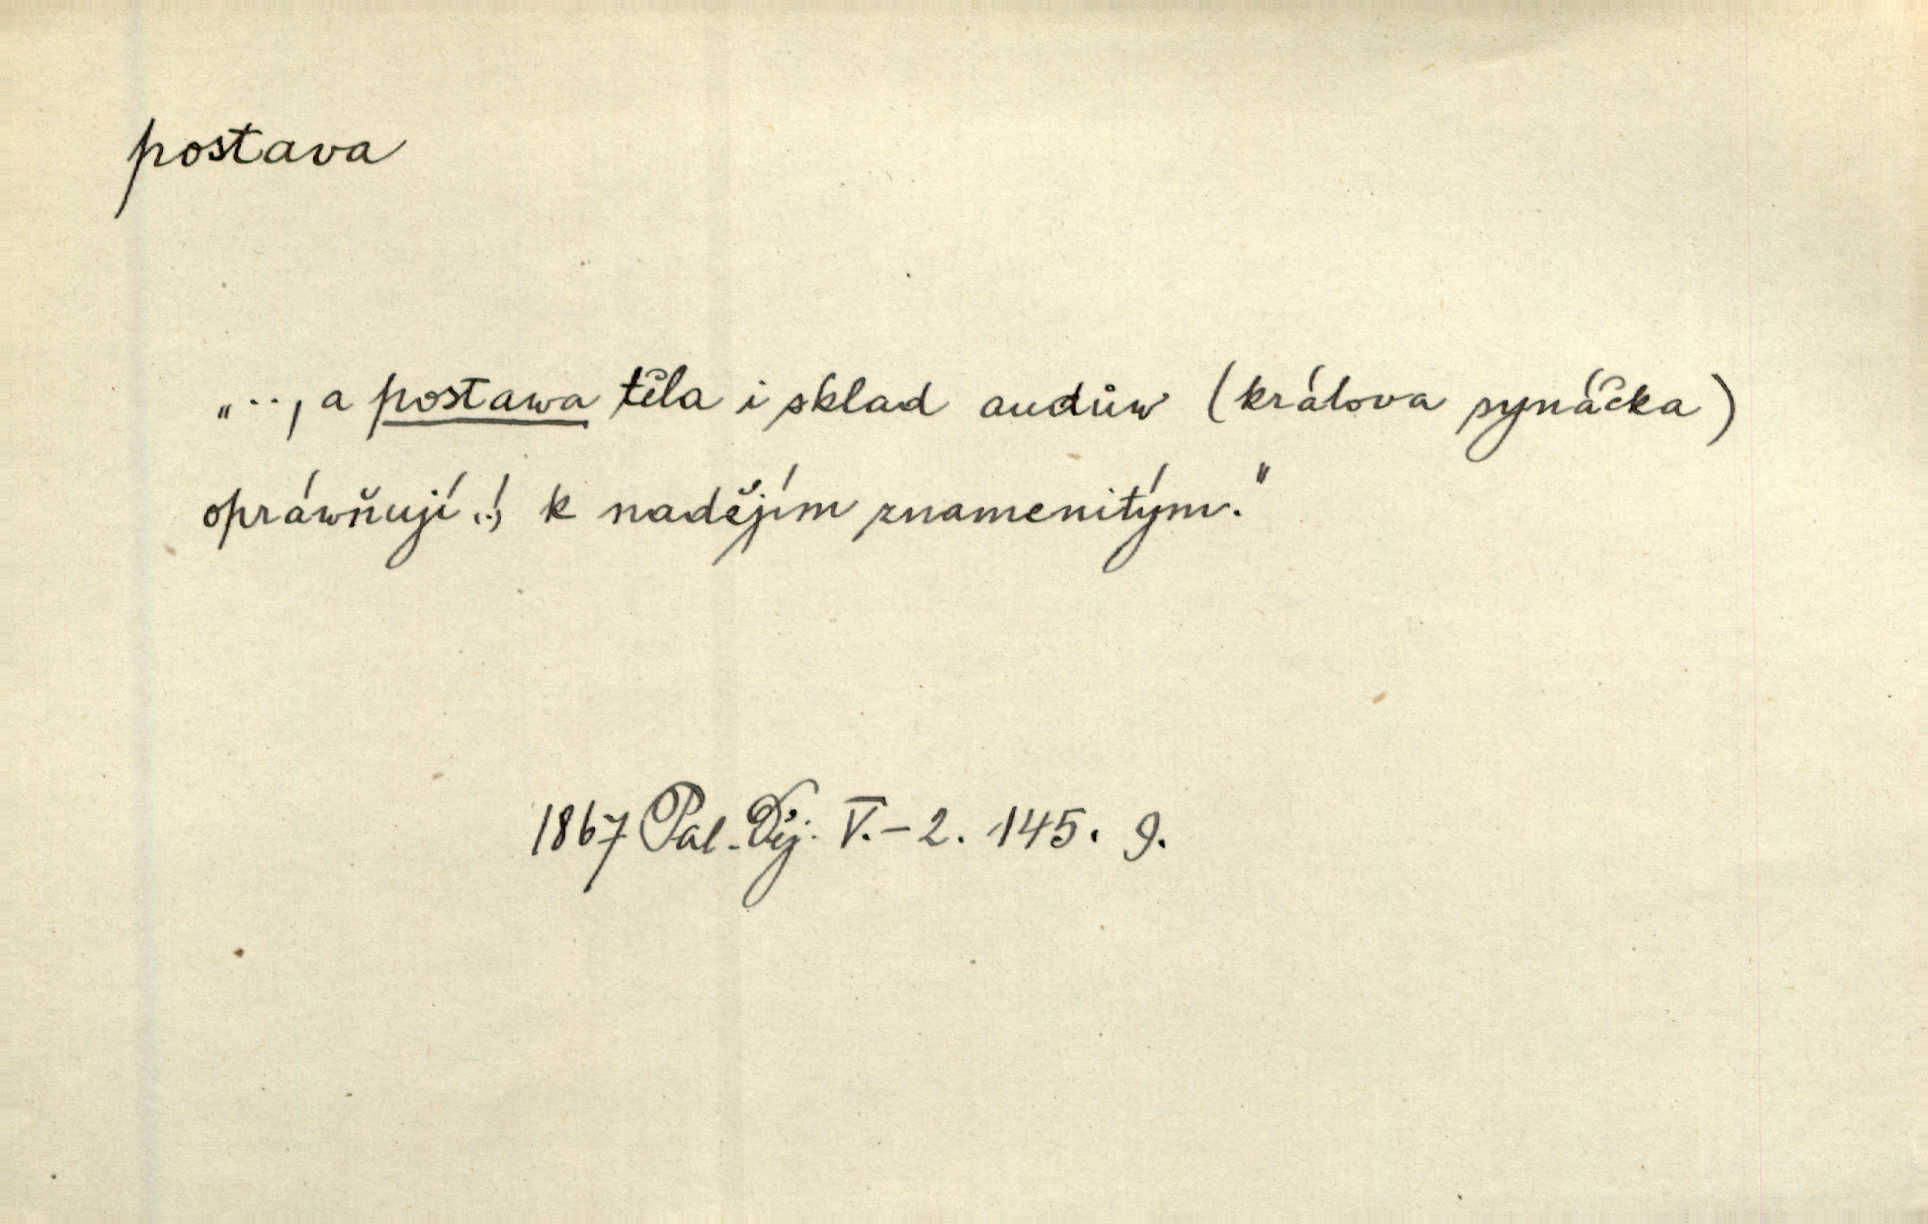 postava
„..., a postawa těla i sklad audůw (králova synáčka)
opráwňují ..., k nadějím znamenitým."
1867 Pal. Děj. V.-2. 145. 9.